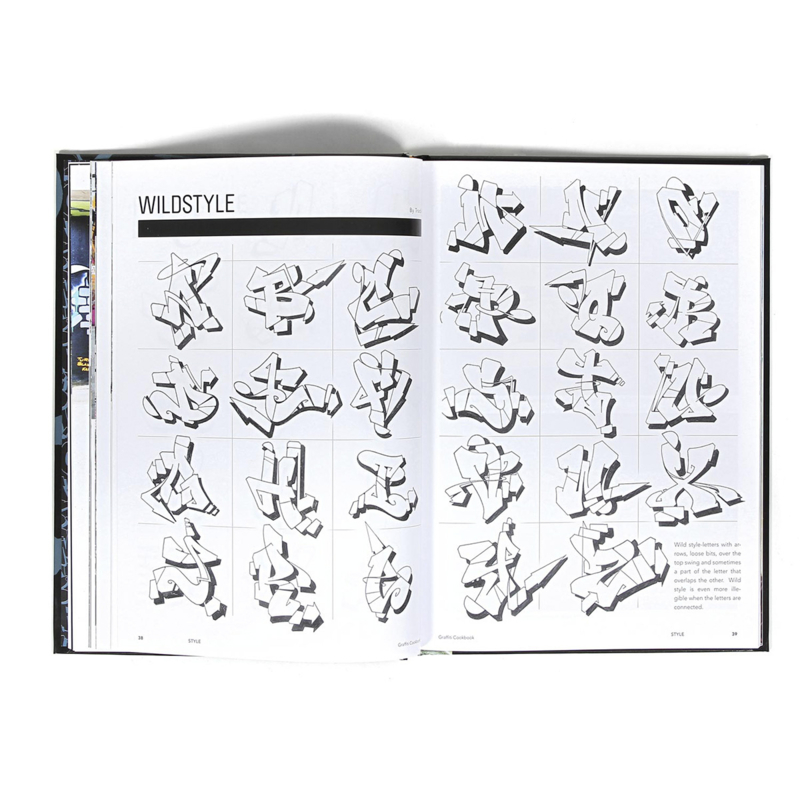 WILDSTYLE
A B C
D E F
G H I
J K L
M N O
P Q R
S T U
V W X
Y Z
Wild style-letters with ar-
rows, loose bits, over the
top swing and sometimes
a part of the letter that
overlaps the other. Wild
style is even more ille-
gible when the letters are
connected.
38 STYLE Graffiti Cookbook
Graffiti Cookbook STYLE 39